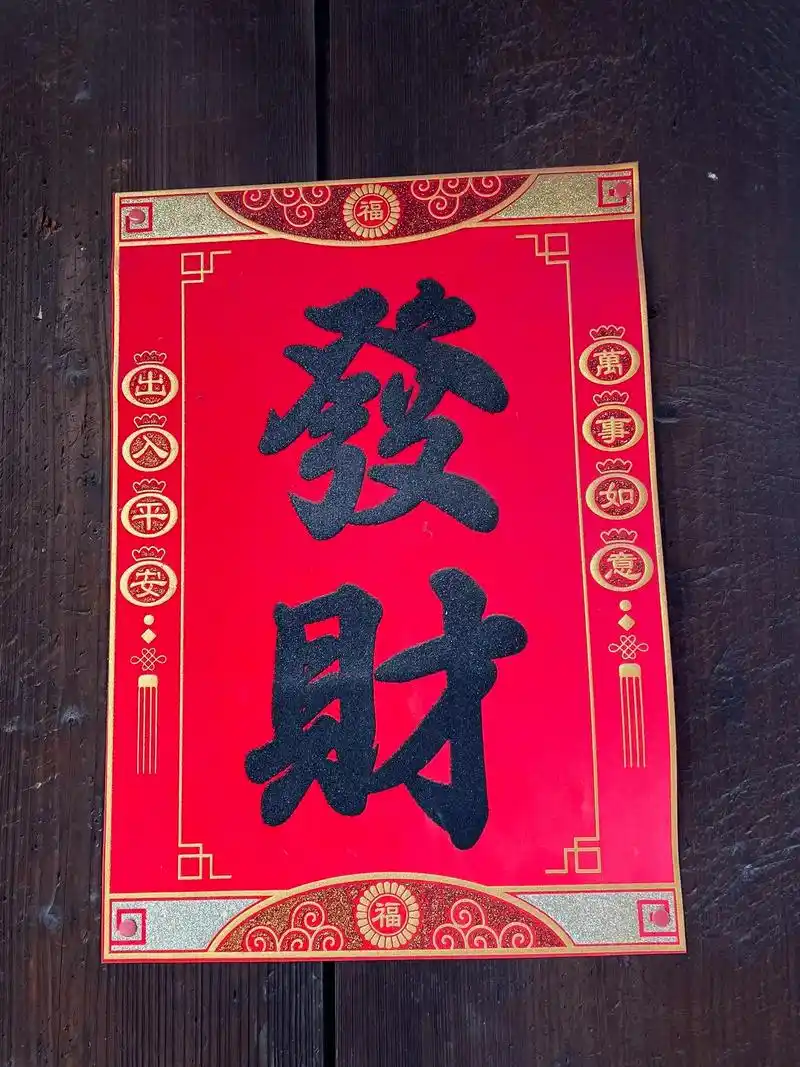 福
發財
萬事如意
出入平安
福